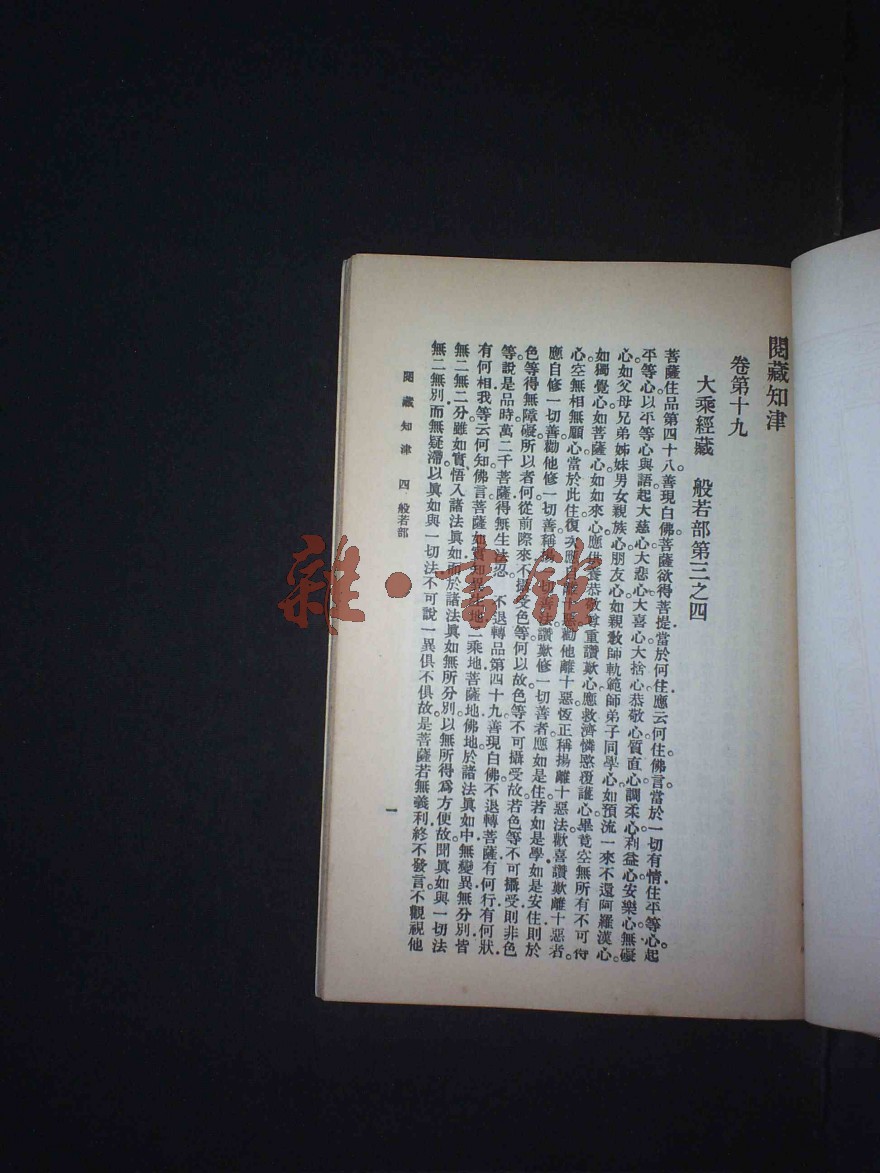 閱藏知津
卷第十九
大乘經藏 般若部第三之四
菩薩住品第四十八善現白佛菩薩欲得菩提當於何住應云何住。佛言當於一切有情住平等心起
平等心以平等心與語起大慈心大悲心大喜心大捨心恭敬心質直心調柔心利益心安樂心無礙
心。如父母兄弟姊妹男女親族心朋友心如親教師軌範師弟子同學心如預流一來不還阿羅漢心。
如獨覺心如菩薩心如如來心應供養恭敬尊重讚歎心應救濟憐愍覆護心畢竟空無所有不可得
心空無相無願心當於此住復次應自離十惡勸他離十惡恆正稱揚離十惡法歡喜讚歎離十惡者。
應自修一切善勸他修一切善稱揚一切善法讚歎修一切善者應如是住若如是學如是安住則於
色等得無障礙所以者何從前際來不攝受色等何以故色等不可攝受故若色等不可攝受則非色
等說是品時萬二千菩薩得無生法忍。 不退轉品第四十九善現白佛不退轉菩薩有何行有何狀
有何相我等云何知佛言菩薩如實知異生地二乘地菩薩地佛地於諸法眞如中無變異無分別皆
無二無二分雖如實悟入諸法眞如而於諸法眞如無所分別以無所得爲方便故聞眞如與一切法
無二無別而無疑滯以眞如與一切法不可說一異俱不俱故是菩薩若無義利終不發言不觀視他
閱藏知津 四 般若部
一
雜·書館